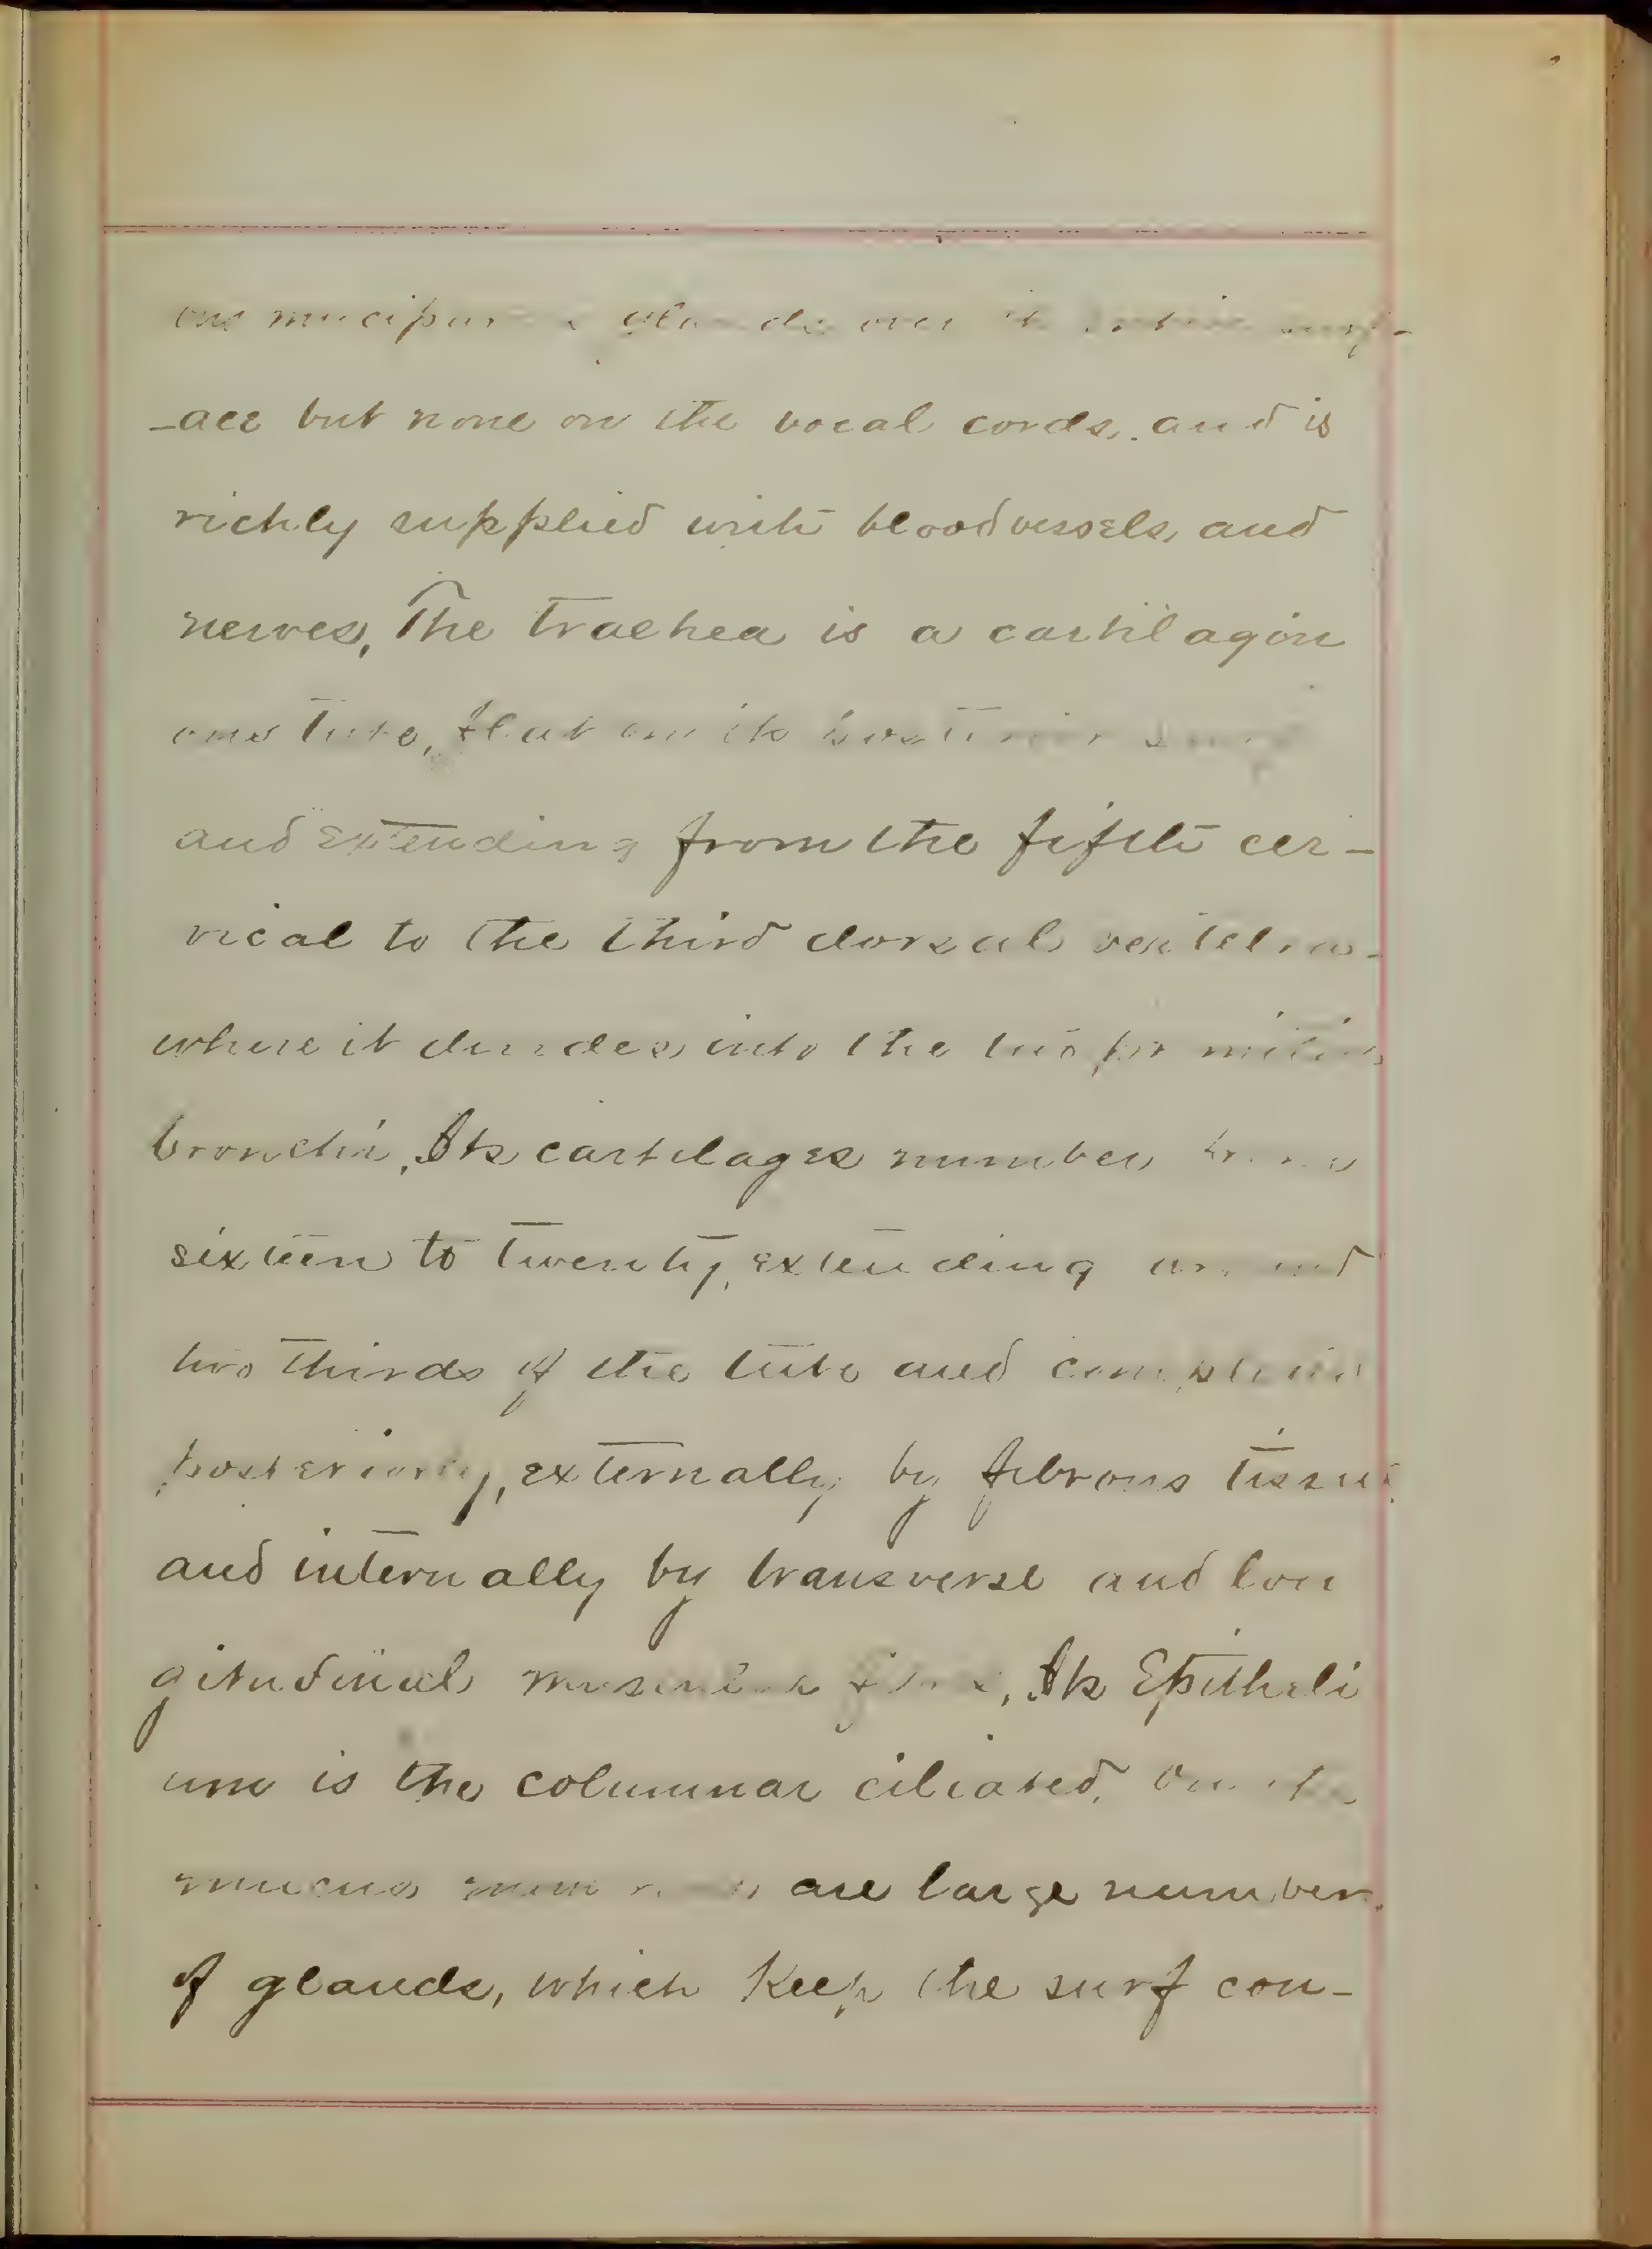 ous muciparous glands over its entire surf-
-ace but none on the vocal cords, and is
richly supplied with bloodvessels and
nerves, The trachea is a cartilagin
ous tube, flat on its posterior surf
and extending from the fifth cer-
vical to the third dorsal vertebra-
where it divides into the two primitive
bronchi, Its cartilages number from
sixteen to twenty, extending around
two thirds of the tube and completed
posteriorly, externally by fibrous tissue
and internally by transverse and lon
gitudinal muscular fibres, Its Epitheli
um is the columnar ciliated, On its
mucus membrane are large number
of glands, which keep the surf con-